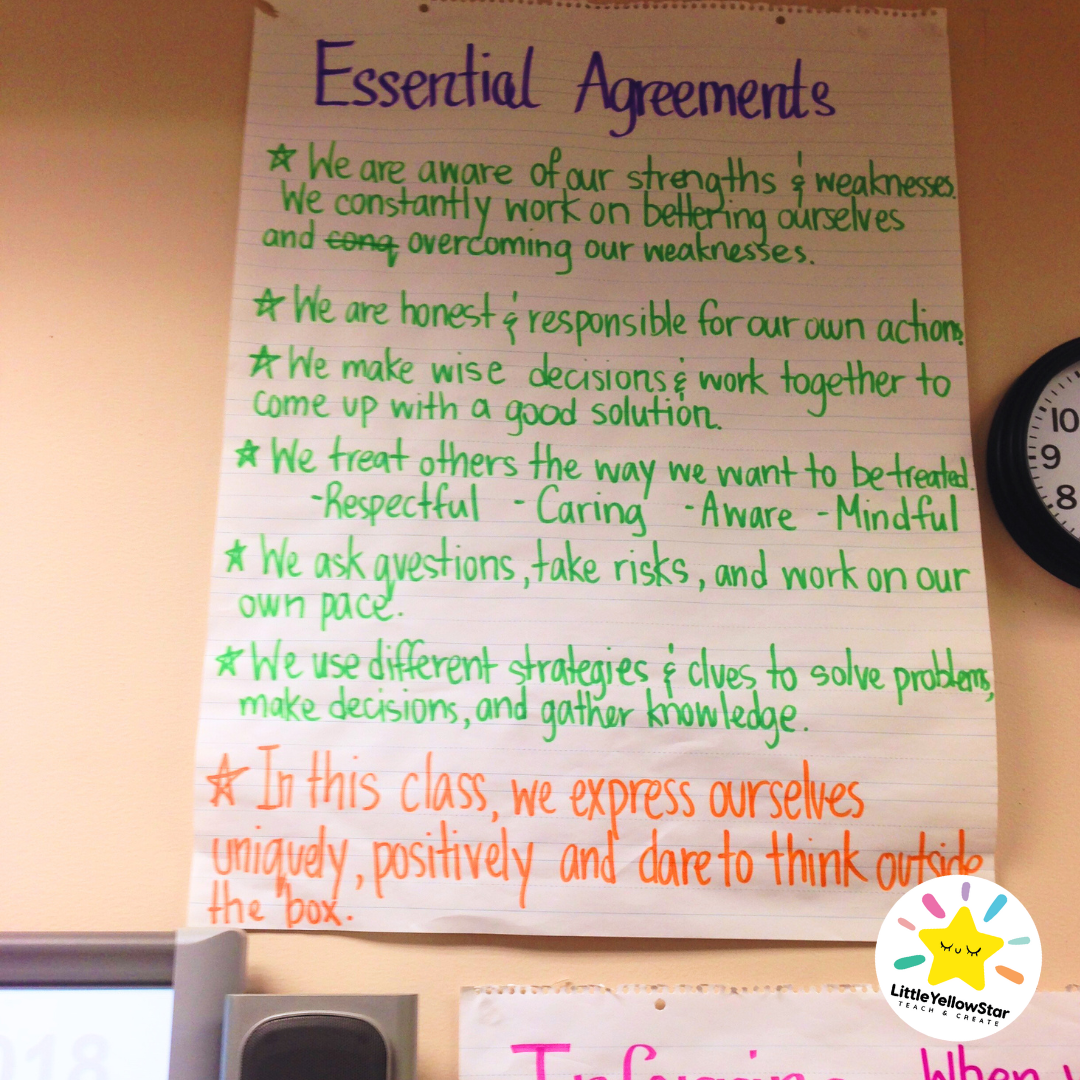 Essential Agreements
☆ We are aware of our strengths & weaknesses.
We constantly work on bettering ourselves
and ~~conq~~ overcoming our weaknesses.
☆ We are honest & responsible for our own actions.
☆ We make wise decisions & work together to
come up with a good solution.
☆ We treat others the way we want to be treated.
-Respectful - Caring -Aware -Mindful
☆ We ask questions, take risks, and work on our
own pace.
☆ We use different strategies & clues to solve problems,
make decisions, and gather knowledge.
☆ In this class, we express ourselves
uniquely, positively and dare to think outside
the box.
10
9
8
LittleYellowStar
TEACH & CREATE
018
Inferring When